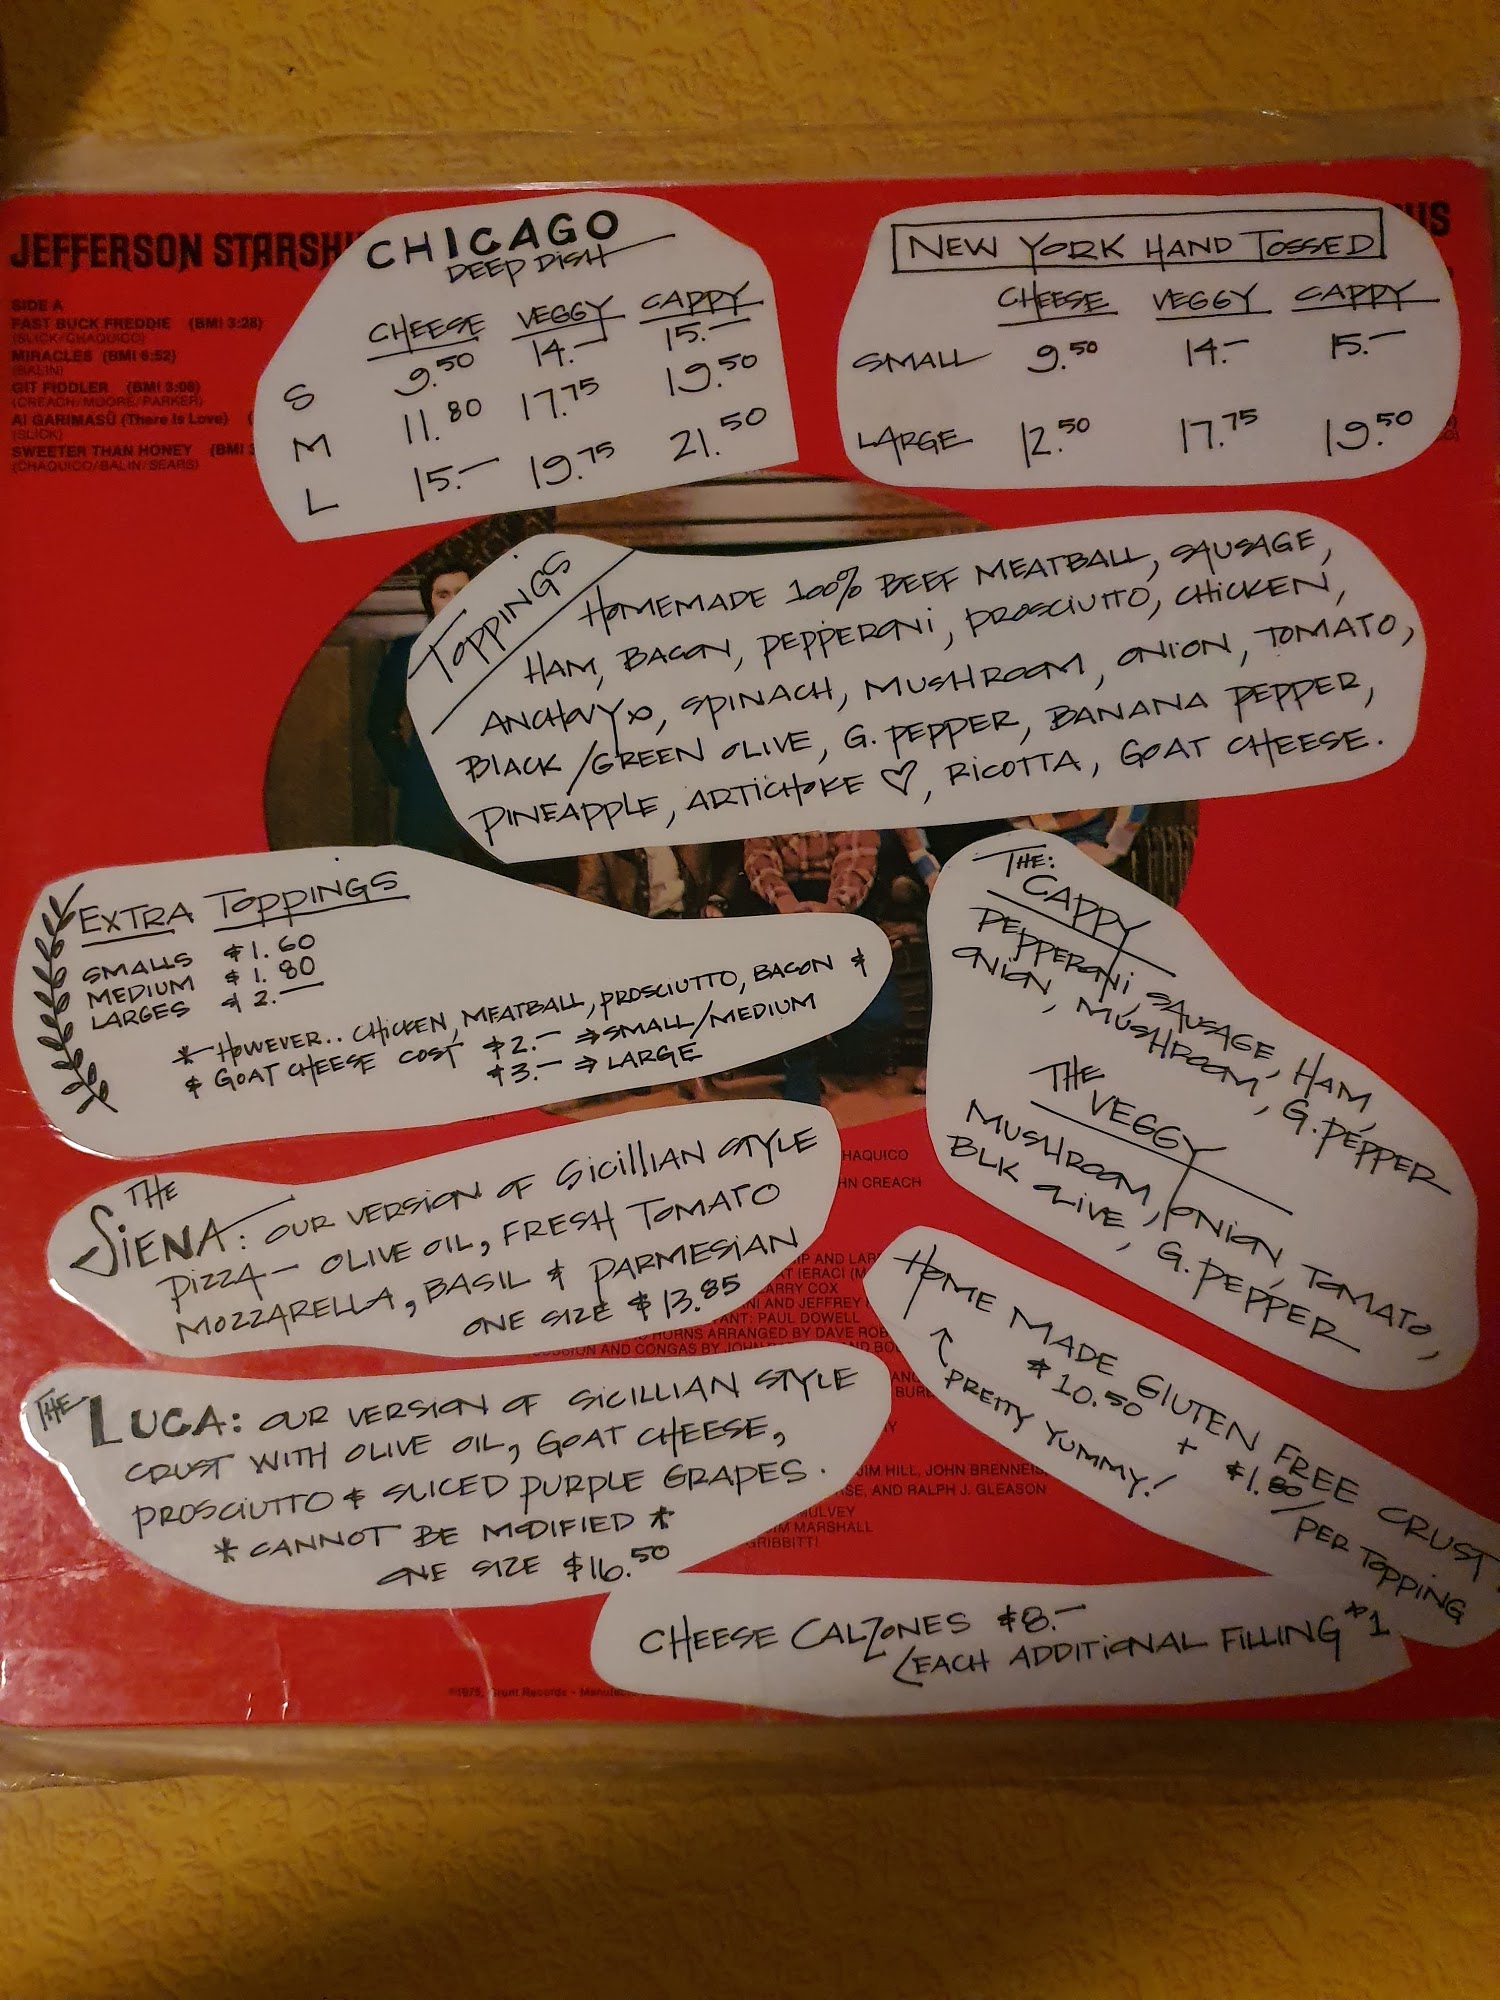 JEFFERSON STARSHI
US
SIDE A
FAST BUCK FREDDIE (BMI 3:28)
(SLICK/CHAQUICO)
MIRACLES (BMI 6:52)
(BALIN)
GIT FIDDLER (BMI 3:08)
(CREACH/MOORE/PARKER)
AI GARIMASŪ (There Is Love) (
(SLICK)
SWEETER THAN HONEY (BMI 3
(CHAQUICO/BALIN/SEARS)
CHICAGO
DEEP DISH
CHEESE VEGGY CAPPY
S 9.50 14.— 15.—
M 11.80 17.75 19.50
L 15.— 19.75 21.50
NEW YORK HAND TOSSED
CHEESE VEGGY CAPPY
SMALL 9.50 14.— 15.—
LARGE 12.50 17.75 19.50
TOPPINGS
HOMEMADE 100% BEEF MEATBALL, SAUSAGE,
HAM, BACON, PEPPERONI, PROSCIUTTO, CHICKEN,
ANCHOVY, SPINACH, MUSHROOM, ONION, TOMATO,
BLACK/GREEN OLIVE, G. PEPPER, BANANA PEPPER,
PINEAPPLE, ARTICHOKE ♡, RICOTTA, GOAT CHEESE.
EXTRA TOPPINGS
SMALLS $1.60
MEDIUM $1.80
LARGES $2.—
* HOWEVER.. CHICKEN, MEATBALL, PROSCIUTTO, BACON &
& GOAT CHEESE COST $2.— ⇒ SMALL/MEDIUM
$3.— ⇒ LARGE
THE:
CAPPY
PEPPERONI, SAUSAGE, HAM,
ONION, MUSHROOM, G. PEPPER
THE
VEGGY
MUSHROOM, ONION, TOMATO,
BLK OLIVE, G. PEPPER
THE
SIENA: OUR VERSION OF SICILLIAN STYLE
PIZZA — OLIVE OIL, FRESH TOMATO
MOZZARELLA, BASIL & PARMESIAN
ONE SIZE $13.85
THE LUCA: OUR VERSION OF SICILLIAN STYLE
CRUST WITH OLIVE OIL, GOAT CHEESE,
PROSCIUTTO & SLICED PURPLE GRAPES.
* CANNOT BE MODIFIED *
ONE SIZE $16.50
HOME MADE GLUTEN FREE CRUST
$10.50 + $1.80/PER TOPPING
PRETTY YUMMY!
CHEESE CALZONES $8.—
(EACH ADDITIONAL FILLING $1
HAQUICO
HN CREACH
IP AND LAR
AT IERACI (M
ARRY COX
NI AND JEFFREY
ANT: PAUL DOWELL
HORNS ARRANGED BY DAVE ROB
SSION AND CONGAS BY JOHN
JIM HILL, JOHN BRENNEIS,
SE, AND RALPH J. GLEASON
MULVEY
IM MARSHALL
GRIBBITT!
©1975, Grunt Records - Manufac